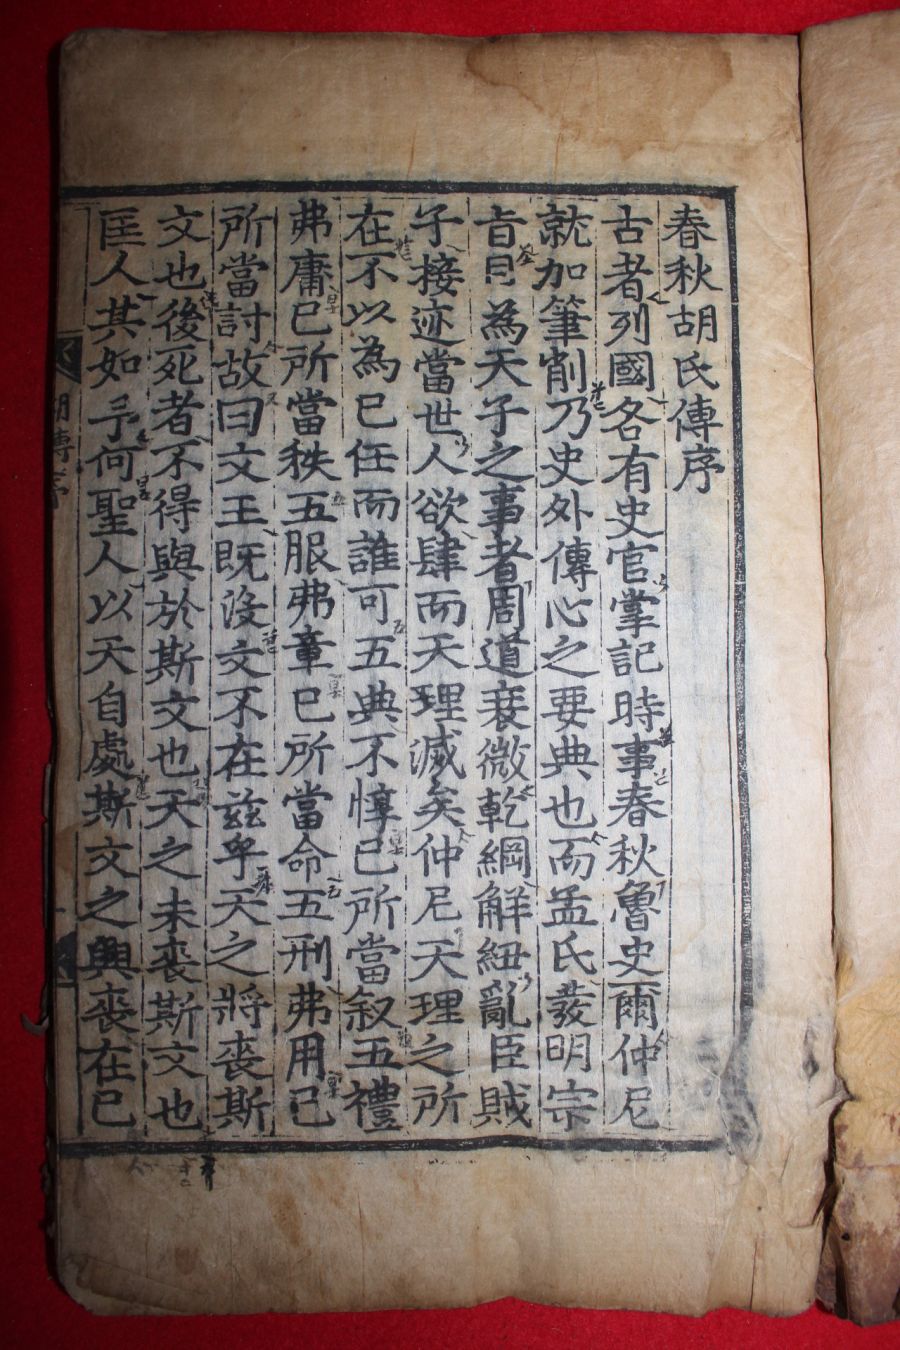 春秋胡氏傳序
古者列國各有史官掌記時事春秋魯史爾仲尼
就加筆削乃史外傳心之要典也而孟氏發明宗
旨目為天子之事者周道衰微乾綱解紐亂臣賊
子接迹當世人欲肆而天理滅矣仲尼天理之所
在不以為己任而誰可五典不惇己所當叙五禮
弗庸己所當秩五服弗章己所當命五刑弗用己
所當討故曰文王既沒文不在茲乎天之將喪斯
文也後死者不得與於斯文也天之未喪斯文也
匡人其如予何聖人以天自處斯文之興喪在己
胡傳序